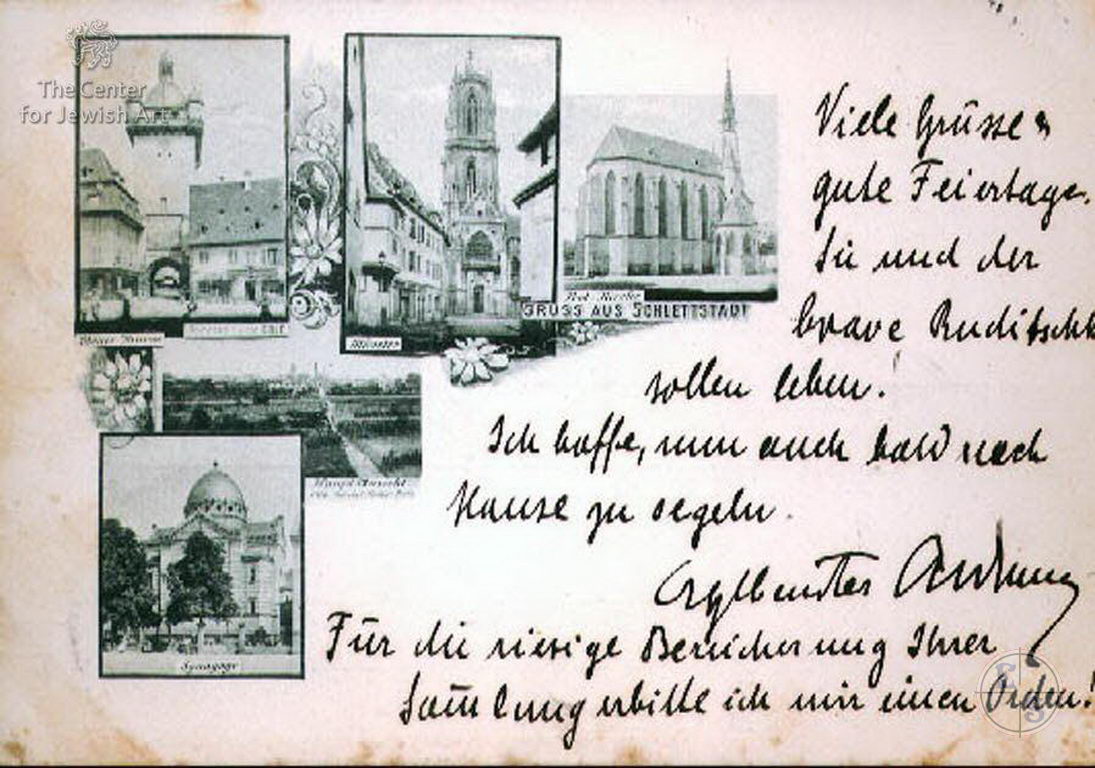 The Center
for Jewish Art
Münster
GRUSS AUS SCHLETTSTADT
Synagoge
Viele Grüsse &
gute Feiertage.
Sie und der
brave Ruditschk
sollen leben!
Ich hoffe, nun auch bald nach
Hause zu segeln.
Für die riesige Bereicherung Ihrer
Sam̄lung erbitte ich mir einen Orden!